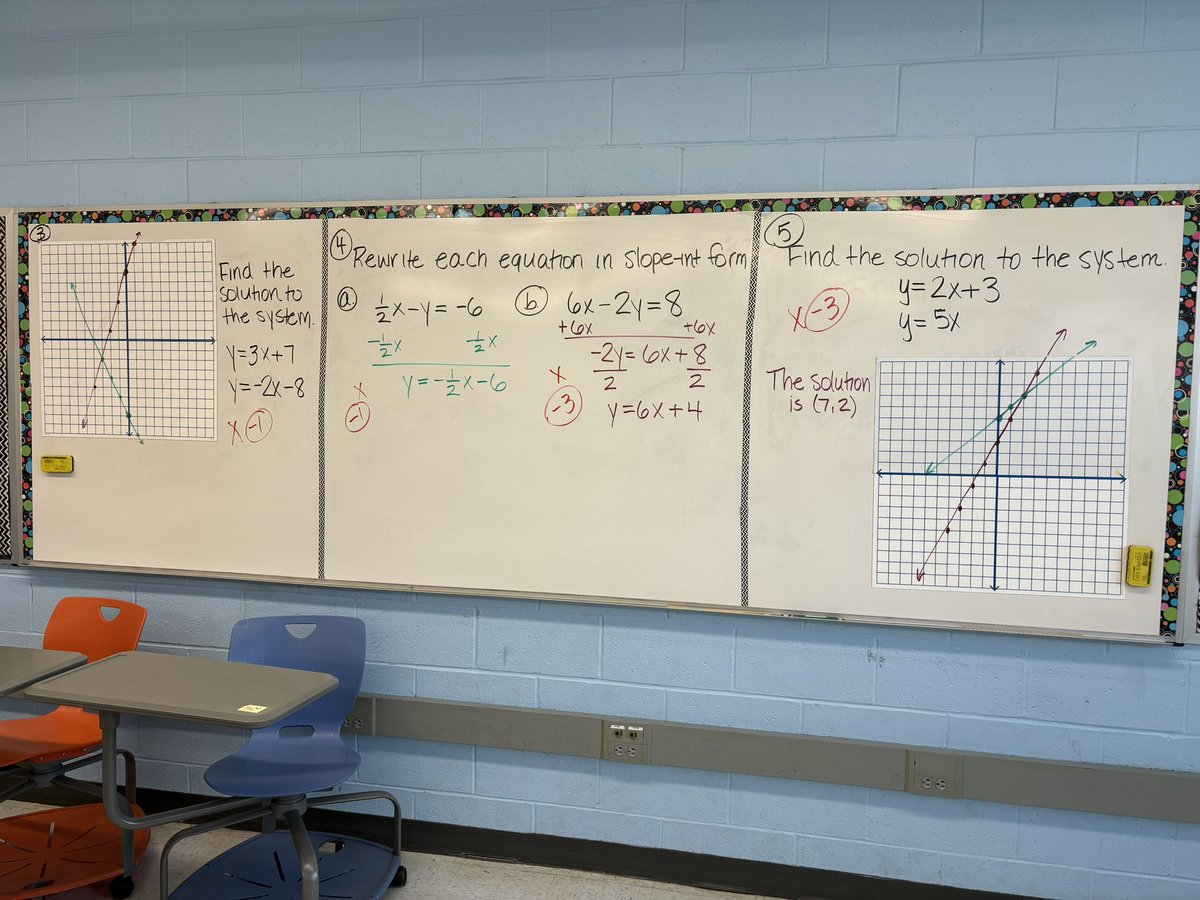 ③
Find the
solution to
the system.
y=3x+7
y=-2x-8
x -1
④
Rewrite each equation in slope-int form
ⓐ
½x-y= -6
-½x -½x
y=-½x-6
x
-1
ⓑ
6x-2y=8
+6x +6x
-2y= 6x+8
2 2
y=6x+4
x
-3
⑤
Find the solution to the system.
y=2x+3
y= 5x
x -3
The solution
is (7,2)